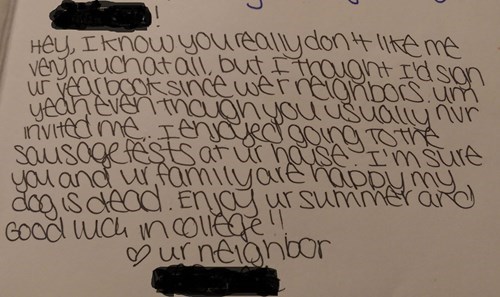 !
Hey, I know you really don't like me
very much at all, but I thought I'd sign
ur yearbook since we r neighbors. um
yeah even though you usually nvr
invited me.. I enjoyed going to the
sausagefests at ur house. I'm sure
you and ur family are happy my
dog is dead. Enjoy ur summer and
good luck in college!!
♡ ur neighbor